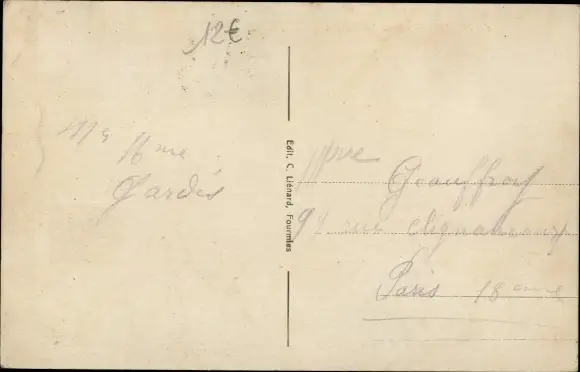 12€
Mme
Jardès
Edit. C. Liénard, Fourmies
Geauffroy
rue Clignancourt
Paris 18eme